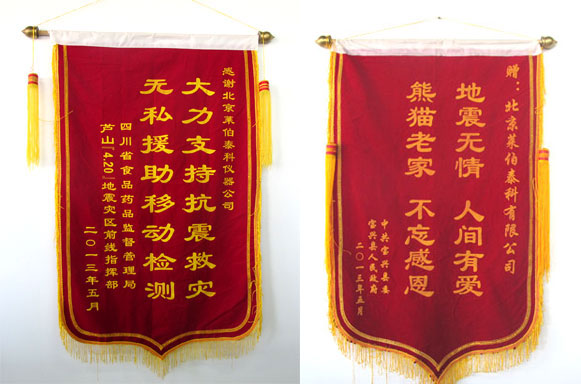 感谢北京莱伯泰科仪器公司
大力支持抗震救灾
无私援助移动检测
四川省食品药品监督管理局
芦山“4.20”地震灾区前线指挥部
二〇一三年五月
赠：北京莱伯泰科有限公司
地震无情 人间有爱
熊猫老家 不忘感恩
中共宝兴县委
宝兴县人民政府
二〇一三年五月